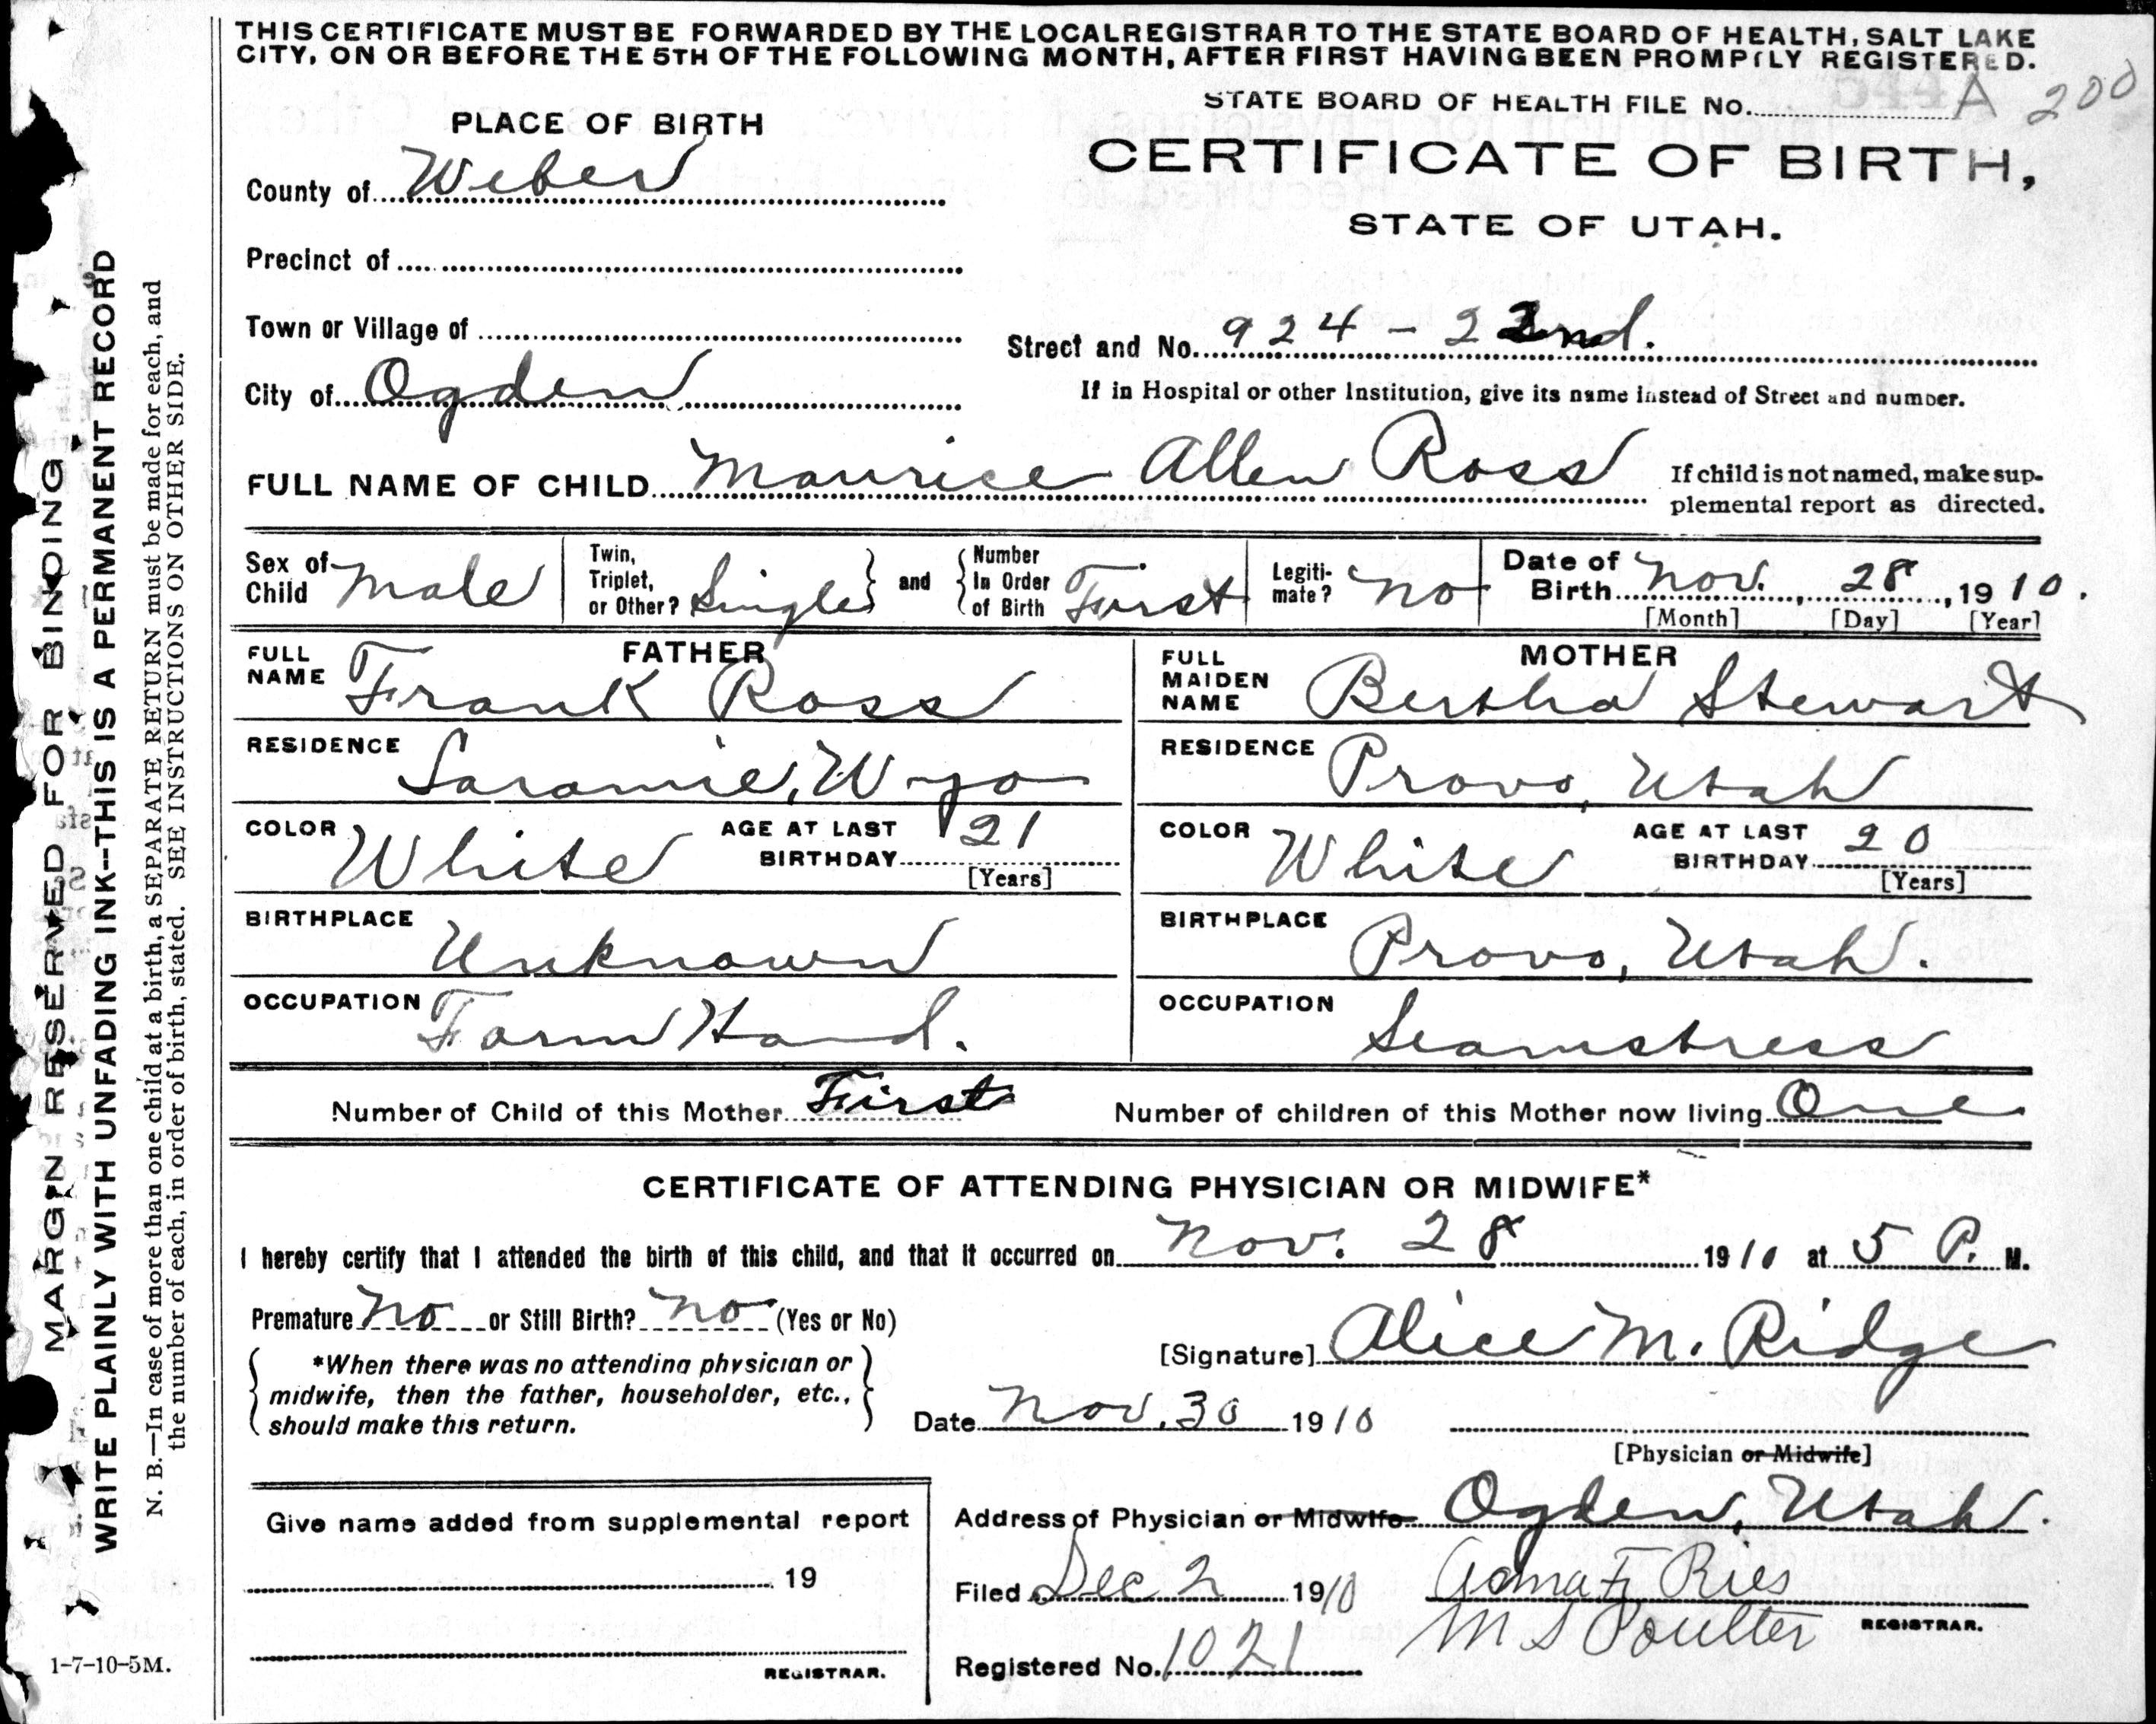 THIS CERTIFICATE MUST BE FORWARDED BY THE LOCAL REGISTRAR TO THE STATE BOARD OF HEALTH, SALT LAKE
CITY, ON OR BEFORE THE 5TH OF THE FOLLOWING MONTH, AFTER FIRST HAVING BEEN PROMPTLY REGISTERED.
STATE BOARD OF HEALTH FILE NO. A 200
PLACE OF BIRTH
CERTIFICATE OF BIRTH,
STATE OF UTAH.
County of Weber
Precinct of
Town or Village of
Street and No. 924 - 22nd.
City of Ogden
If in Hospital or other Institution, give its name instead of Street and number.
FULL NAME OF CHILD Maurice Allen Ross
If child is not named, make sup-
plemental report as directed.
Sex of Child Male
Twin, Triplet, or Other? Single
and
Number In Order of Birth First
Legiti-mate? No
Date of Birth Nov. 28, 1910.
[Month] [Day] [Year]
FATHER
FULL NAME Frank Ross
RESIDENCE Laramie, Wyo
COLOR White
AGE AT LAST BIRTHDAY 21
[Years]
BIRTHPLACE Unknown
OCCUPATION Farm Hand.
MOTHER
FULL MAIDEN NAME Bertha Stewart
RESIDENCE Provo, Utah
COLOR White
AGE AT LAST BIRTHDAY 20
[Years]
BIRTHPLACE Provo, Utah.
OCCUPATION Seamstress
Number of Child of this Mother First
Number of children of this Mother now living One
CERTIFICATE OF ATTENDING PHYSICIAN OR MIDWIFE*
I hereby certify that I attended the birth of this child, and that it occurred on Nov. 28 1910 at 5 P. M.
Premature No or Still Birth? No (Yes or No)
*When there was no attending physician or
midwife, then the father, householder, etc.,
should make this return.
[Signature] Alice M. Ridge
Date Nov. 30 1910
[Physician or Midwife]
Address of Physician or Midwife Ogden, Utah.
Give name added from supplemental report
19
REGISTRAR.
Filed Dec 2 1910
F. Ries
M S Poulter
REGISTRAR.
Registered No. 1021
1-7-10-5M.
MARGIN RESERVED FOR BINDING
WRITE PLAINLY WITH UNFADING INK--THIS IS A PERMANENT RECORD
N. B.—In case of more than one child at a birth, a SEPARATE RETURN must be made for each, and
the number of each, in order of birth, stated. SEE INSTRUCTIONS ON OTHER SIDE.